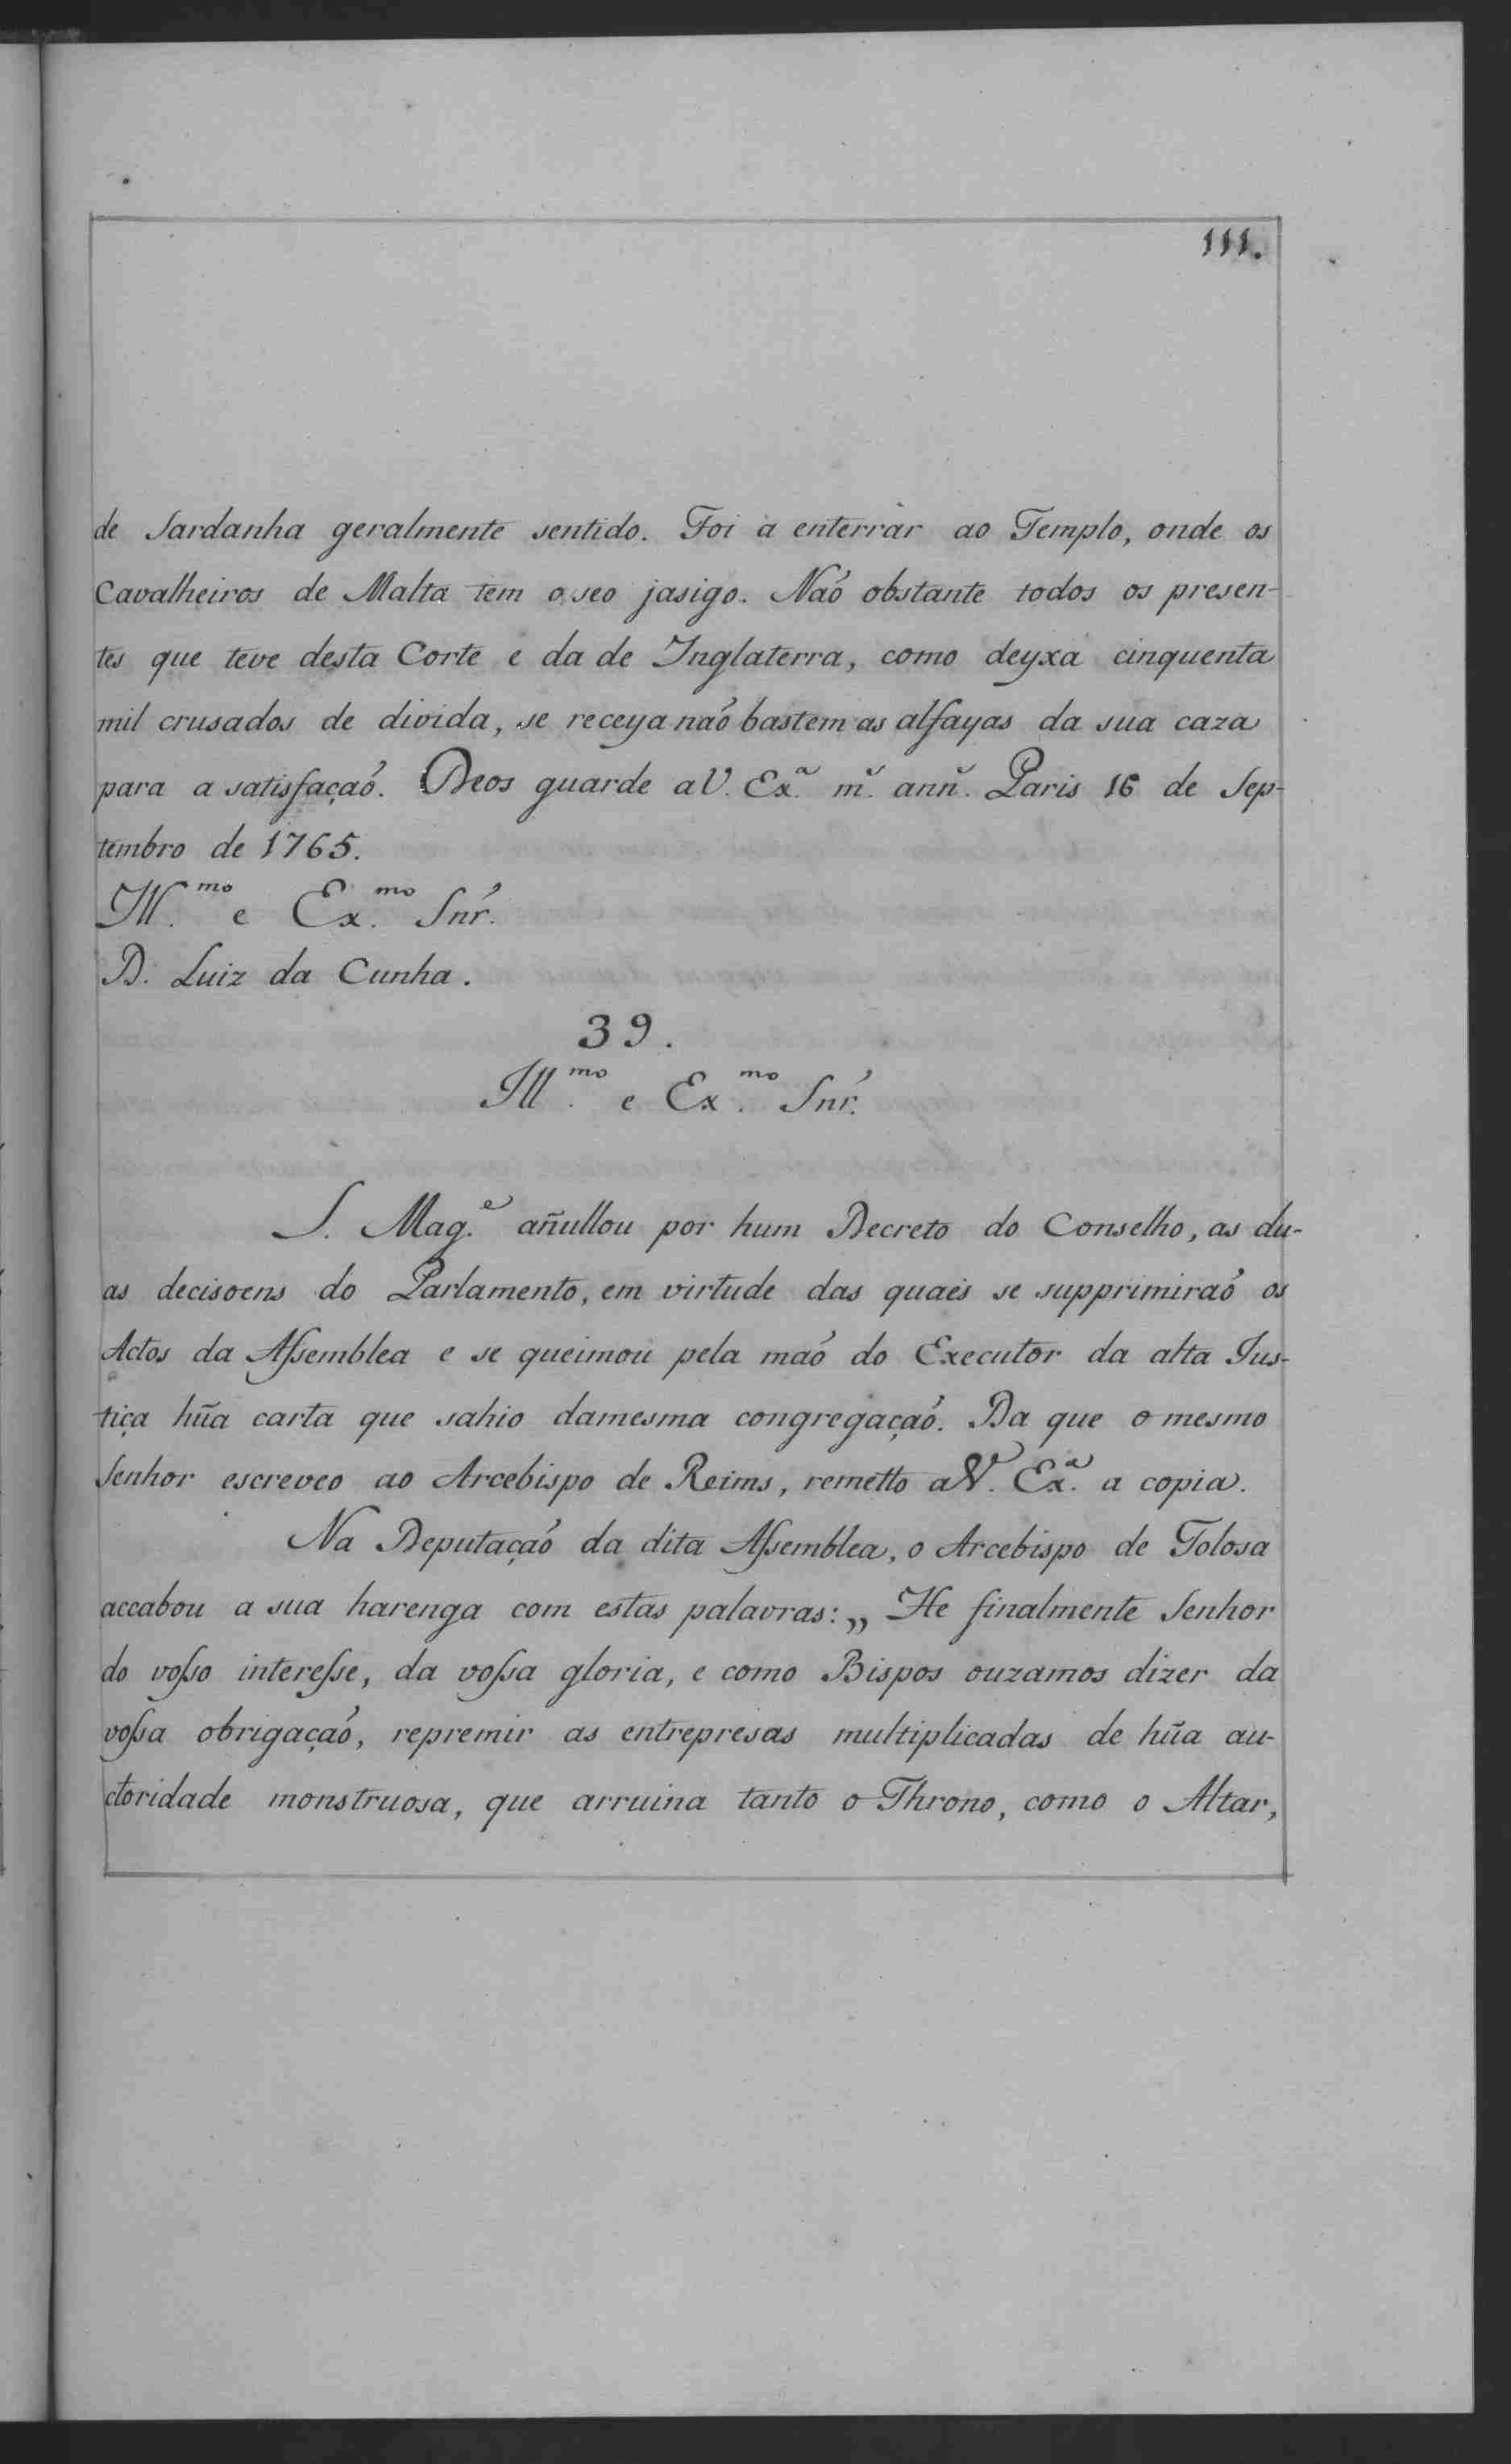 111.
de Sardanha geralmente sentido. Foi a enterrar ao Templo, onde os
Cavalheiros de Malta tem o seo jasigo. Naó obstante todos os presen-
tes que teve desta Corte e da de Inglaterra, como deyxa cinquenta
mil crusados de divida, se receya naó bastem as alfayas da sua caza
para a satisfaçaó. Deos guarde a V. Ex.ª m.ˢ ann.ˢ Paris 16 de Sep-
tembro de 1765.
Ill.ᵐᵒ e Ex.ᵐᵒ Snŕ.
D. Luiz da Cunha.
39.
Ill.ᵐᵒ e Ex.ᵐᵒ Snŕ.
S. Mag.ᵉ añullou por hum Decreto do Conselho, as du-
as decisoens do Parlamento, em virtude das quais se supprimiraó os
Actos da Aſsemblea e se queimou pela maó do Executor da alta Jus-
tiça hũa carta que sahio damesma congregaçaó. Da que o mesmo
Senhor escreveo ao Arcebispo de Reims, remetto a V. Ex.ª a copia.
Na Deputaçaó da dita Aſsemblea, o Arcebispo de Tolosa
accabou a sua harenga com estas palavras: „ He finalmente Senhor
do voſso intereſse, da voſsa gloria, e como Bispos ouzamos dizer da
voſsa obrigaçaó, repremir as entrepresas multiplicadas de hũa au-
ctoridade monstruosa, que arruina tanto o Throno, como o Altar,